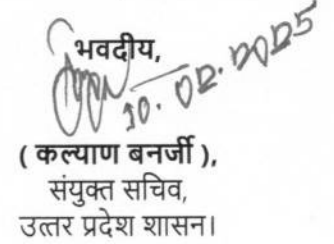 भवदीय,
10.02.2025
( कल्याण बनर्जी ),
संयुक्त सचिव,
उत्तर प्रदेश शासन।